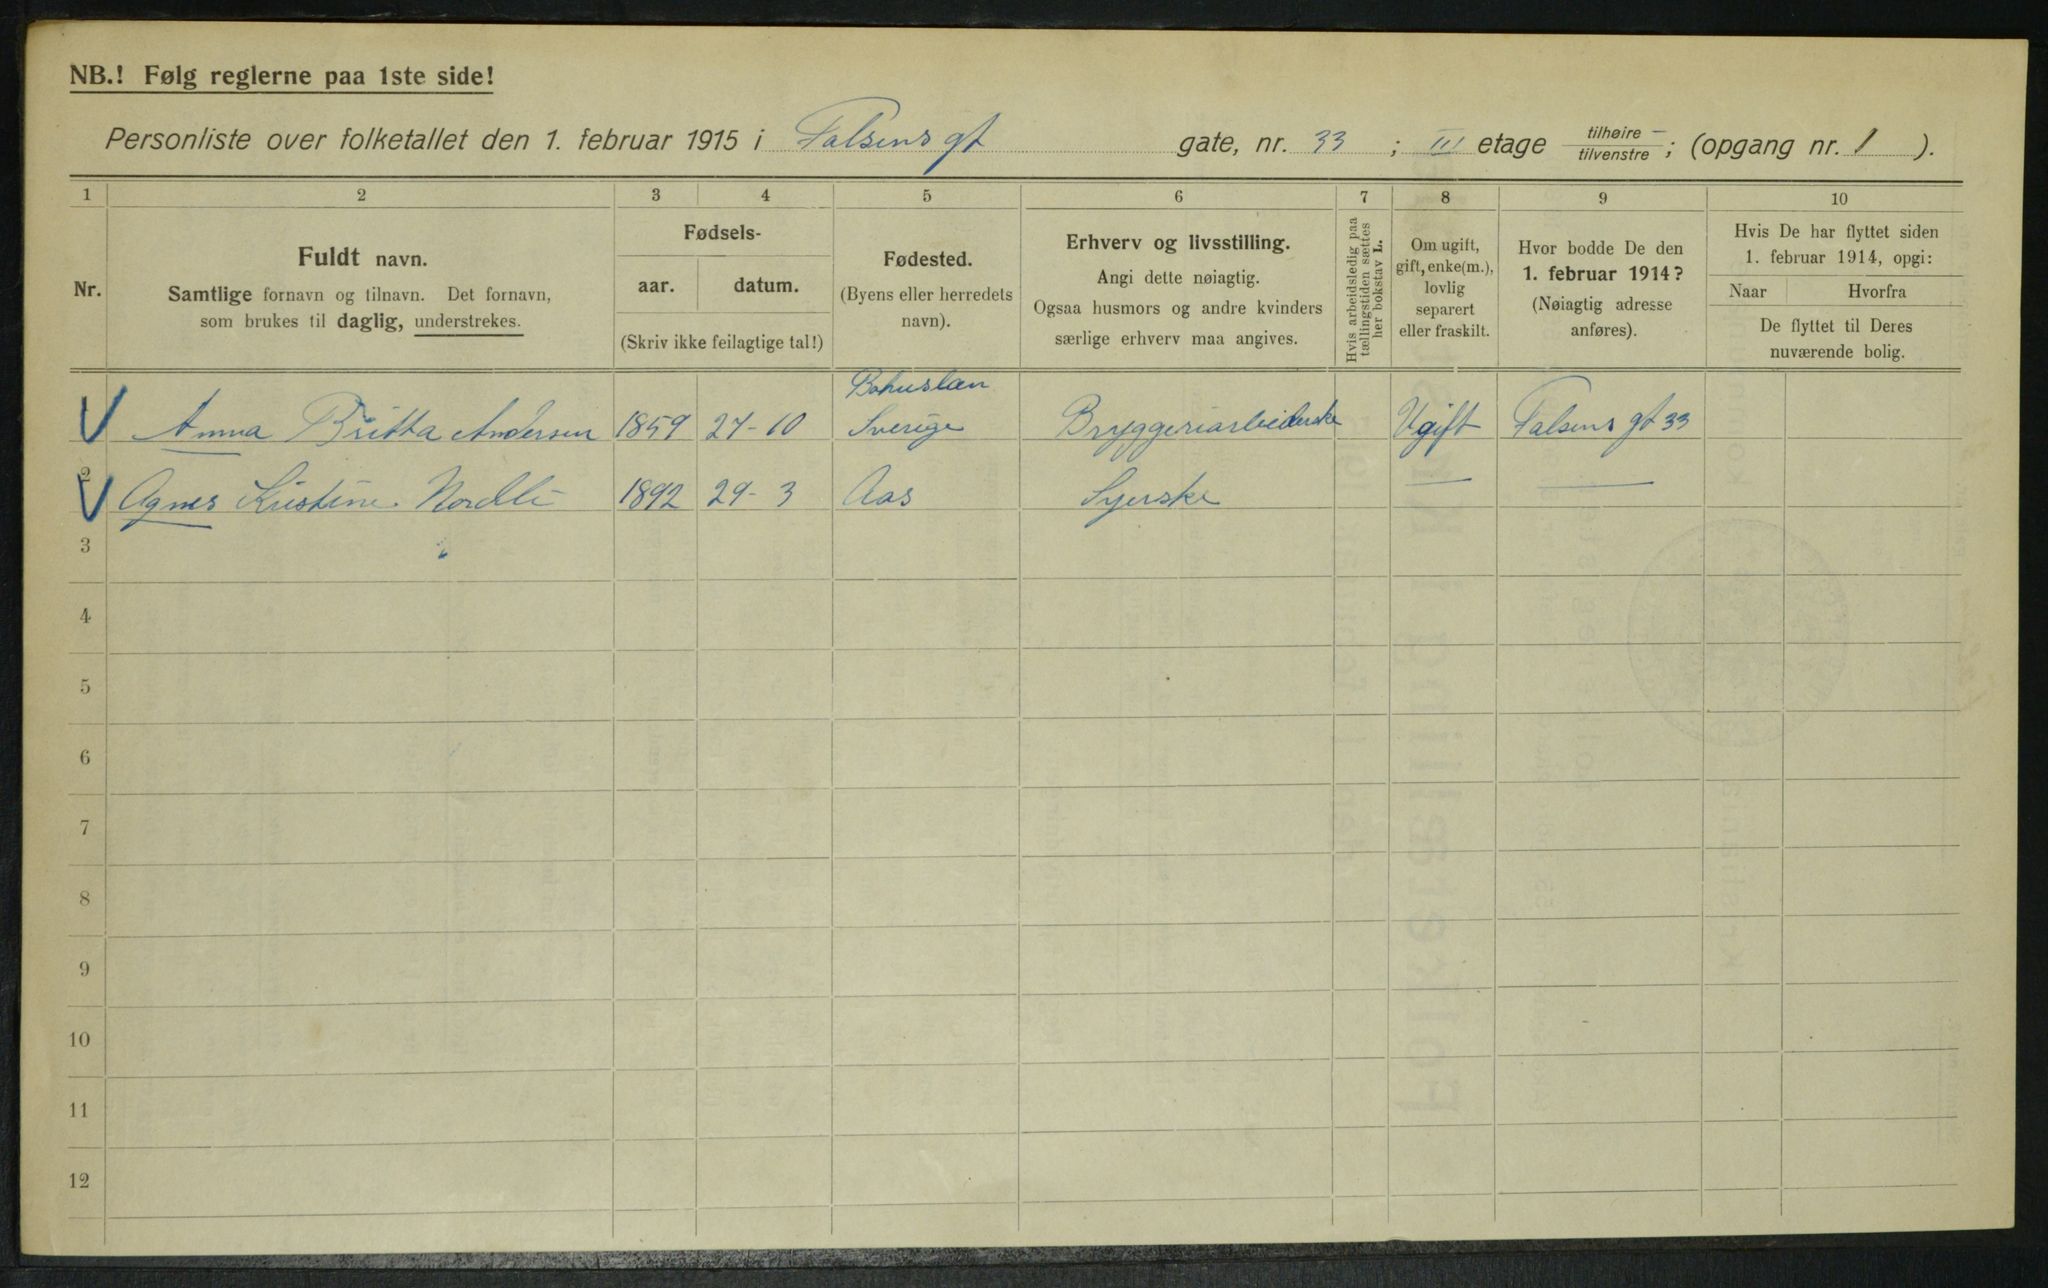 NB.! Følg reglerne paa 1ste side!
Personliste over folketallet den 1. februar 1915 i Falsens gt gate, nr. 33 ; III etage tilhøire / tilvenstre ; (opgang nr. 1 ).
1 2 3 4 5 6 7 8 9 10
Nr.
Fuldt navn.
Samtlige fornavn og tilnavn. Det fornavn,
som brukes til daglig, understrekes.
Fødsels-
aar. datum.
(Skriv ikke feilagtige tal!)
Fødested.
(Byens eller herredets
navn).
Erhverv og livsstilling.
Angi dette nøiagtig.
Ogsaa husmors og andre kvinders
særlige erhverv maa angives.
Hvis arbeidsledig paa
tællingstiden sættes
her bokstav L.
Om ugift,
gift, enke(m.),
lovlig
separert
eller fraskilt.
Hvor bodde De den
1. februar 1914?
(Nøiagtig adresse
anføres).
Hvis De har flyttet siden
1. februar 1914, opgi:
Naar Hvorfra
De flyttet til Deres
nuværende bolig.
Bohuslan
Anna Britta Andersen 1859 27-10 Sverige Bryggeriarbeiderske Ugift Falsens gt 33
2 Agnes Kristine Nordli 1892 29-3 Aas Syerske — —
3
4
5
6
7
8
9
10
11
12